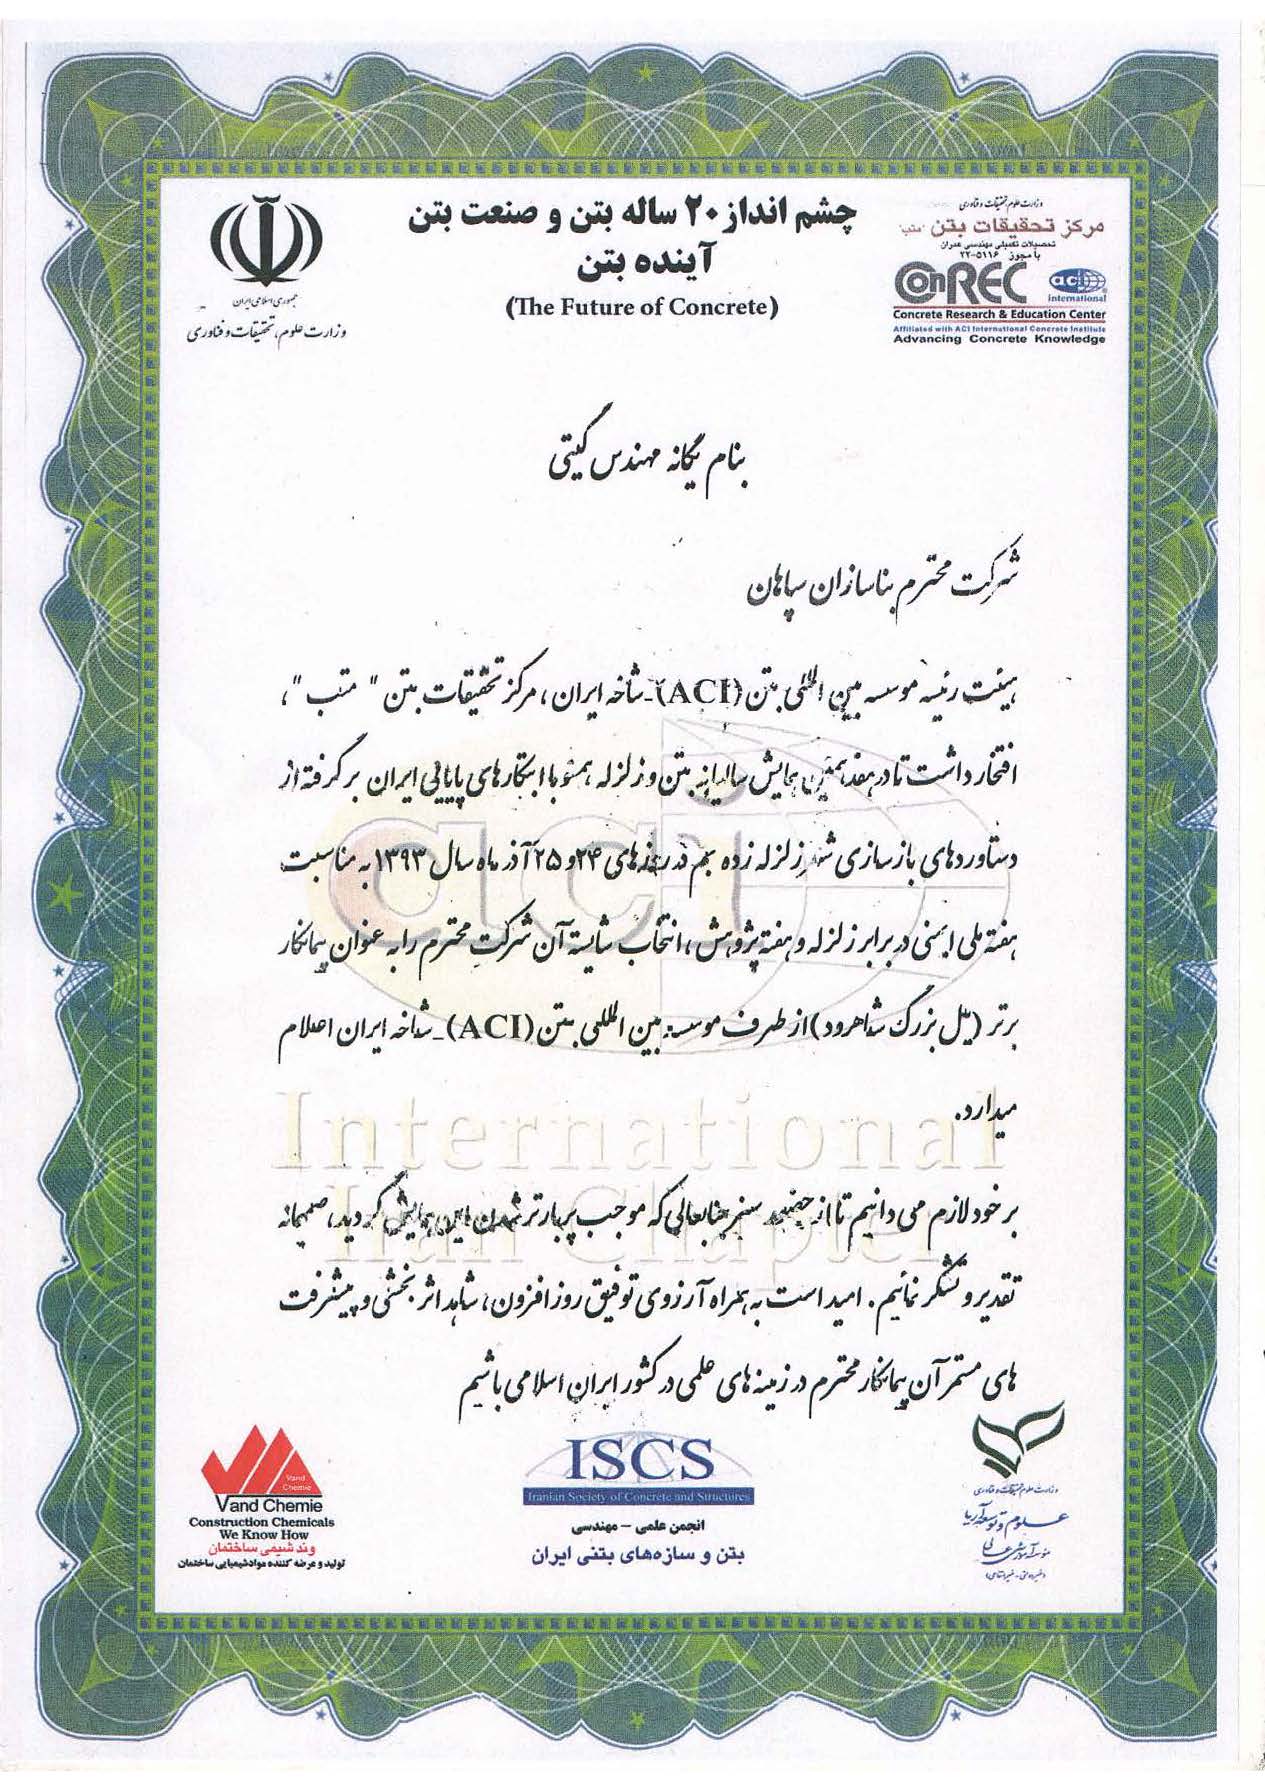 چشم انداز ۲۰ ساله بتن و صنعت بتن
آینده بتن
(The Future of Concrete)
وزارت علوم تحقیقات و فناوری
مرکز تحقیقات بتن "متب"
تحصیلات تکمیلی مهندسی عمران
با مجوز ۲۲-۵۱۱۶
ConREC
aci
international
Concrete Research & Education Center
Affiliated with ACI International Concrete Institute
Advancing Concrete Knowledge
جمهوری اسلامی ایران
وزارت علوم، تحقیقات و فناوری
بنام یگانه مهندس گیتی
شرکت محترم بناسازان سپاهان
هیئت رئیسه موسسه بین المللی بتن (ACI)ـ شاخه ایران، مرکز تحقیقات بتن " متب "،
افتخار داشت تا در هفدهمین همایش سالیانه بتن و زلزله همسو با ابتکارهای پایایی ایران بر گرفته از
دستاوردهای بازسازی شهر زلزله زده بم در روزهای ۲۴ و ۲۵ آذر ماه سال ۱۳۹۳ به مناسبت
هفته ملی ایمنی در برابر زلزله و هفته پژوهش، انتخاب شایسته آن شرکت محترم را به عنوان پیمانکار
برتر (پل بزرگ شاهرود) از طرف موسسه بین المللی بتن (ACI)ـ شاخه ایران اعلام
میدارد.
بر خود لازم می دانیم تا از سفر جنابعالی که موجب پربارتر شدن این همایش گردید، صمیمانه
تقدیر و تشکر نمائیم. امید است به همراه آرزوی توفیق روز افزون، شاهد اثر بخشی و پیشرفت
های مستمر آن پیمانکار محترم در زمینه های علمی در کشور ایران اسلامی باشیم
aci
International
Iran Chapter
Vand Chemie
Vand Chemie
Construction Chemicals
We Know How
وند شیمی ساختمان
تولید و عرضه کننده مواد شیمیایی ساختمان
ISCS
Iranian Society of Concrete and Structures
انجمن علمی - مهندسی
بتن و سازه‌های بتنی ایران
وزارت علوم تحقیقات و فناوری
علوم و توسعه آریا
موسسه آموزش عالی